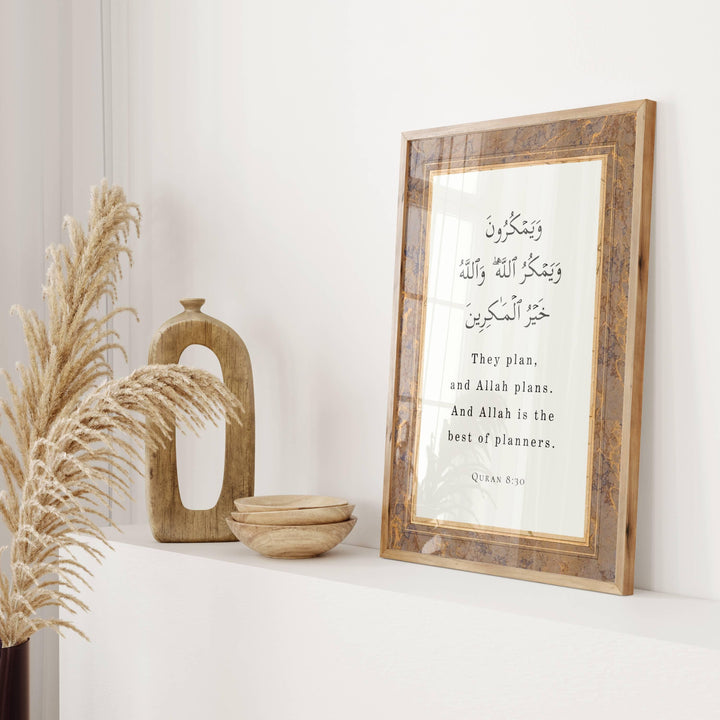 وَيَمْكُرُونَ
وَيَمْكُرُ ٱللَّهُ ۖ وَٱللَّهُ
خَيْرُ ٱلْمَـٰكِرِينَ
They plan,
and Allah plans.
And Allah is the
best of planners.
QURAN 8:30